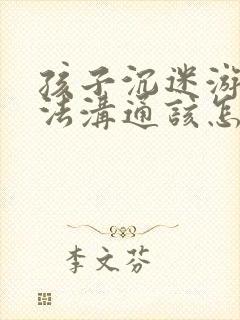 孩子沉迷游
法溝通該怎
李文芬